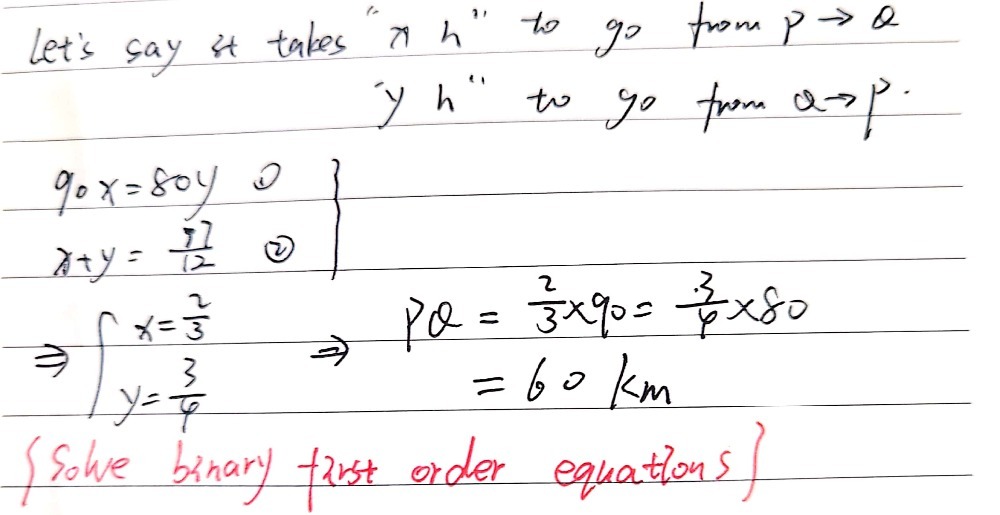 Let's say it takes "x h" to go from P → Q
"y h" to go from Q → P.
90x = 80y ①
x + y = 17/12 ②
⇒ { x = 2/3 ⇒ PQ = 2/3 × 90 = 3/4 × 80
y = 3/4 = 60 km
{Solve binary first order equations}